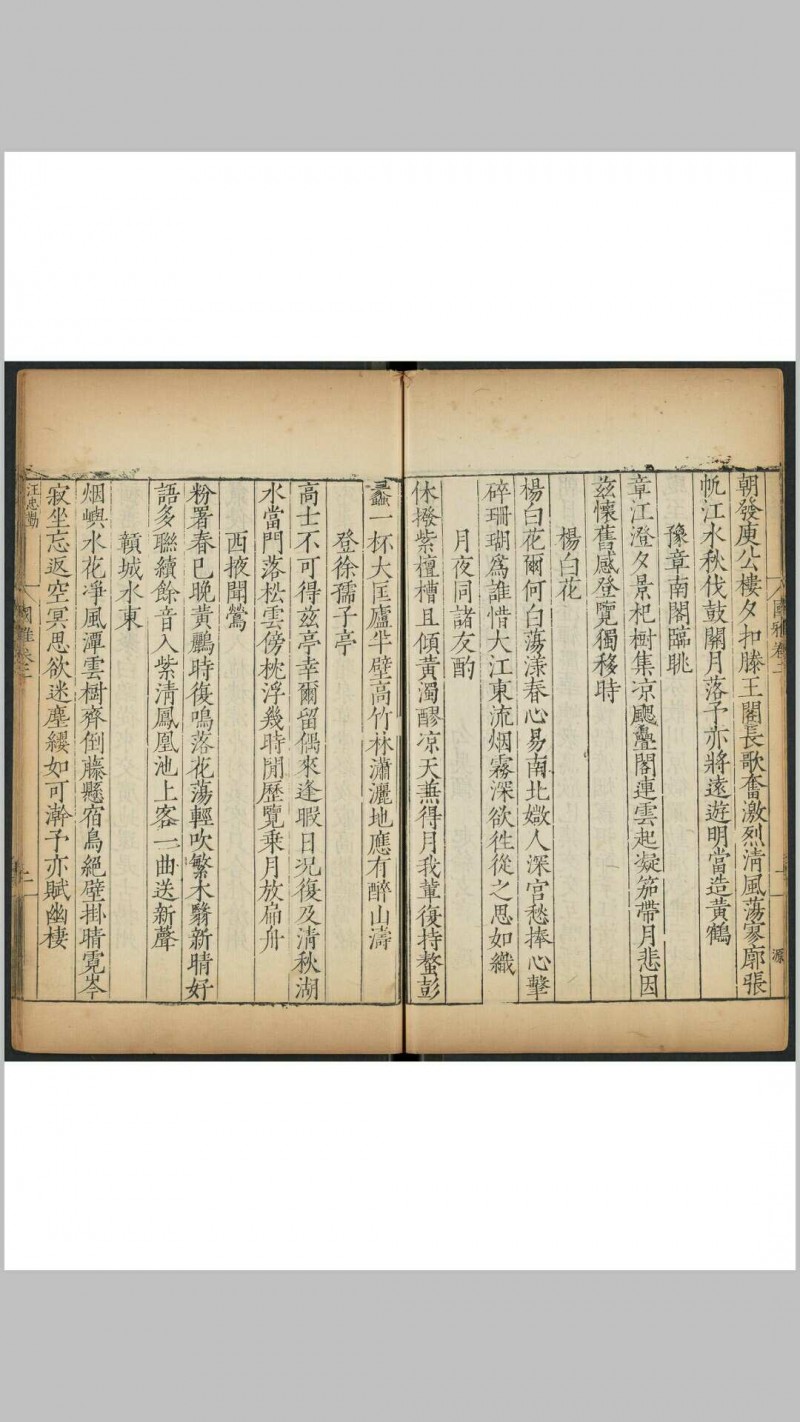 國雅卷二
源
朝發庾公樓夕扣滕王閣長歌奮激烈清風蕩寥廓張
帆江水秋伐鼓關月落予亦將遠遊明當造黃鶴
豫章南閣臨眺
章江澄夕景杞樹集凉颸疊閣連雲起凝笳帶月悲因
兹懷舊感登覽獨移時
楊白花
楊白花爾何白蕩漾春心易南北媺人深宮愁捧心擊
碎珊瑚爲誰惜大江東流烟霧深欲徃從之思如織
月夜同諸友酌
休撥紫檀槽且傾黃濁醪凉天無得月我軰復持螯彭
蠡一杯大匡廬半壁高竹林瀟灑地應有醉山濤
登徐孺子亭
高士不可得兹亭幸爾留偶來逢暇日况復及清秋湖
水當門落松雲傍枕浮幾時閒歷覽乗月放扁舟
西掖聞鶯
粉署春已晚黃鸝時復鳴落花蕩輕吹繁木翳新晴好
語多聯續餘音入紫清鳳凰池上客一曲送新聲
贑城水東
烟嶼水花凈風潭雲樹齊倒藤懸宿鳥絕壁掛晴霓岑
寂坐忘返空冥思欲迷塵纓如可澣予亦賦幽棲
汪忠勤
國雅卷二
二